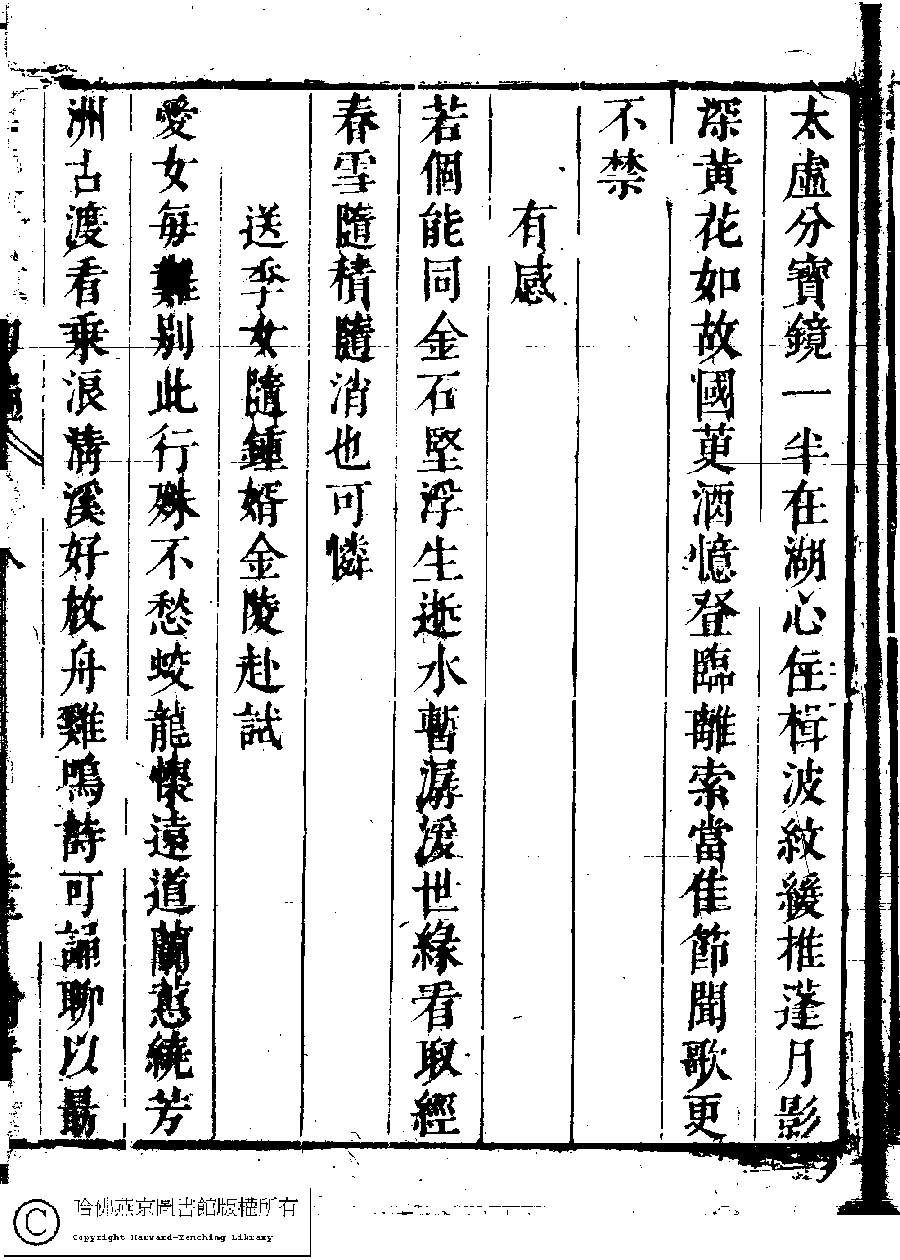 太虛分寶鏡一半在湖心住楫波紋緩推蓬月影
深黃花如故國茰酒憶登臨離索當佳節聞歌更
不禁
有感
若個能同金石堅浮生逝水暫潺湲世緣看取經
春雪隨積隨消也可憐
送季女隨鍾婿金陵赴試
愛女每難別此行殊不愁蛟龍懷遠道蘭蕙繞芳
洲古渡看乘浪溝溪好放舟雞鳴詩可誦聊以勗
哈佛燕京圖書館版權所有
Copyright Harvard-Yenching Library